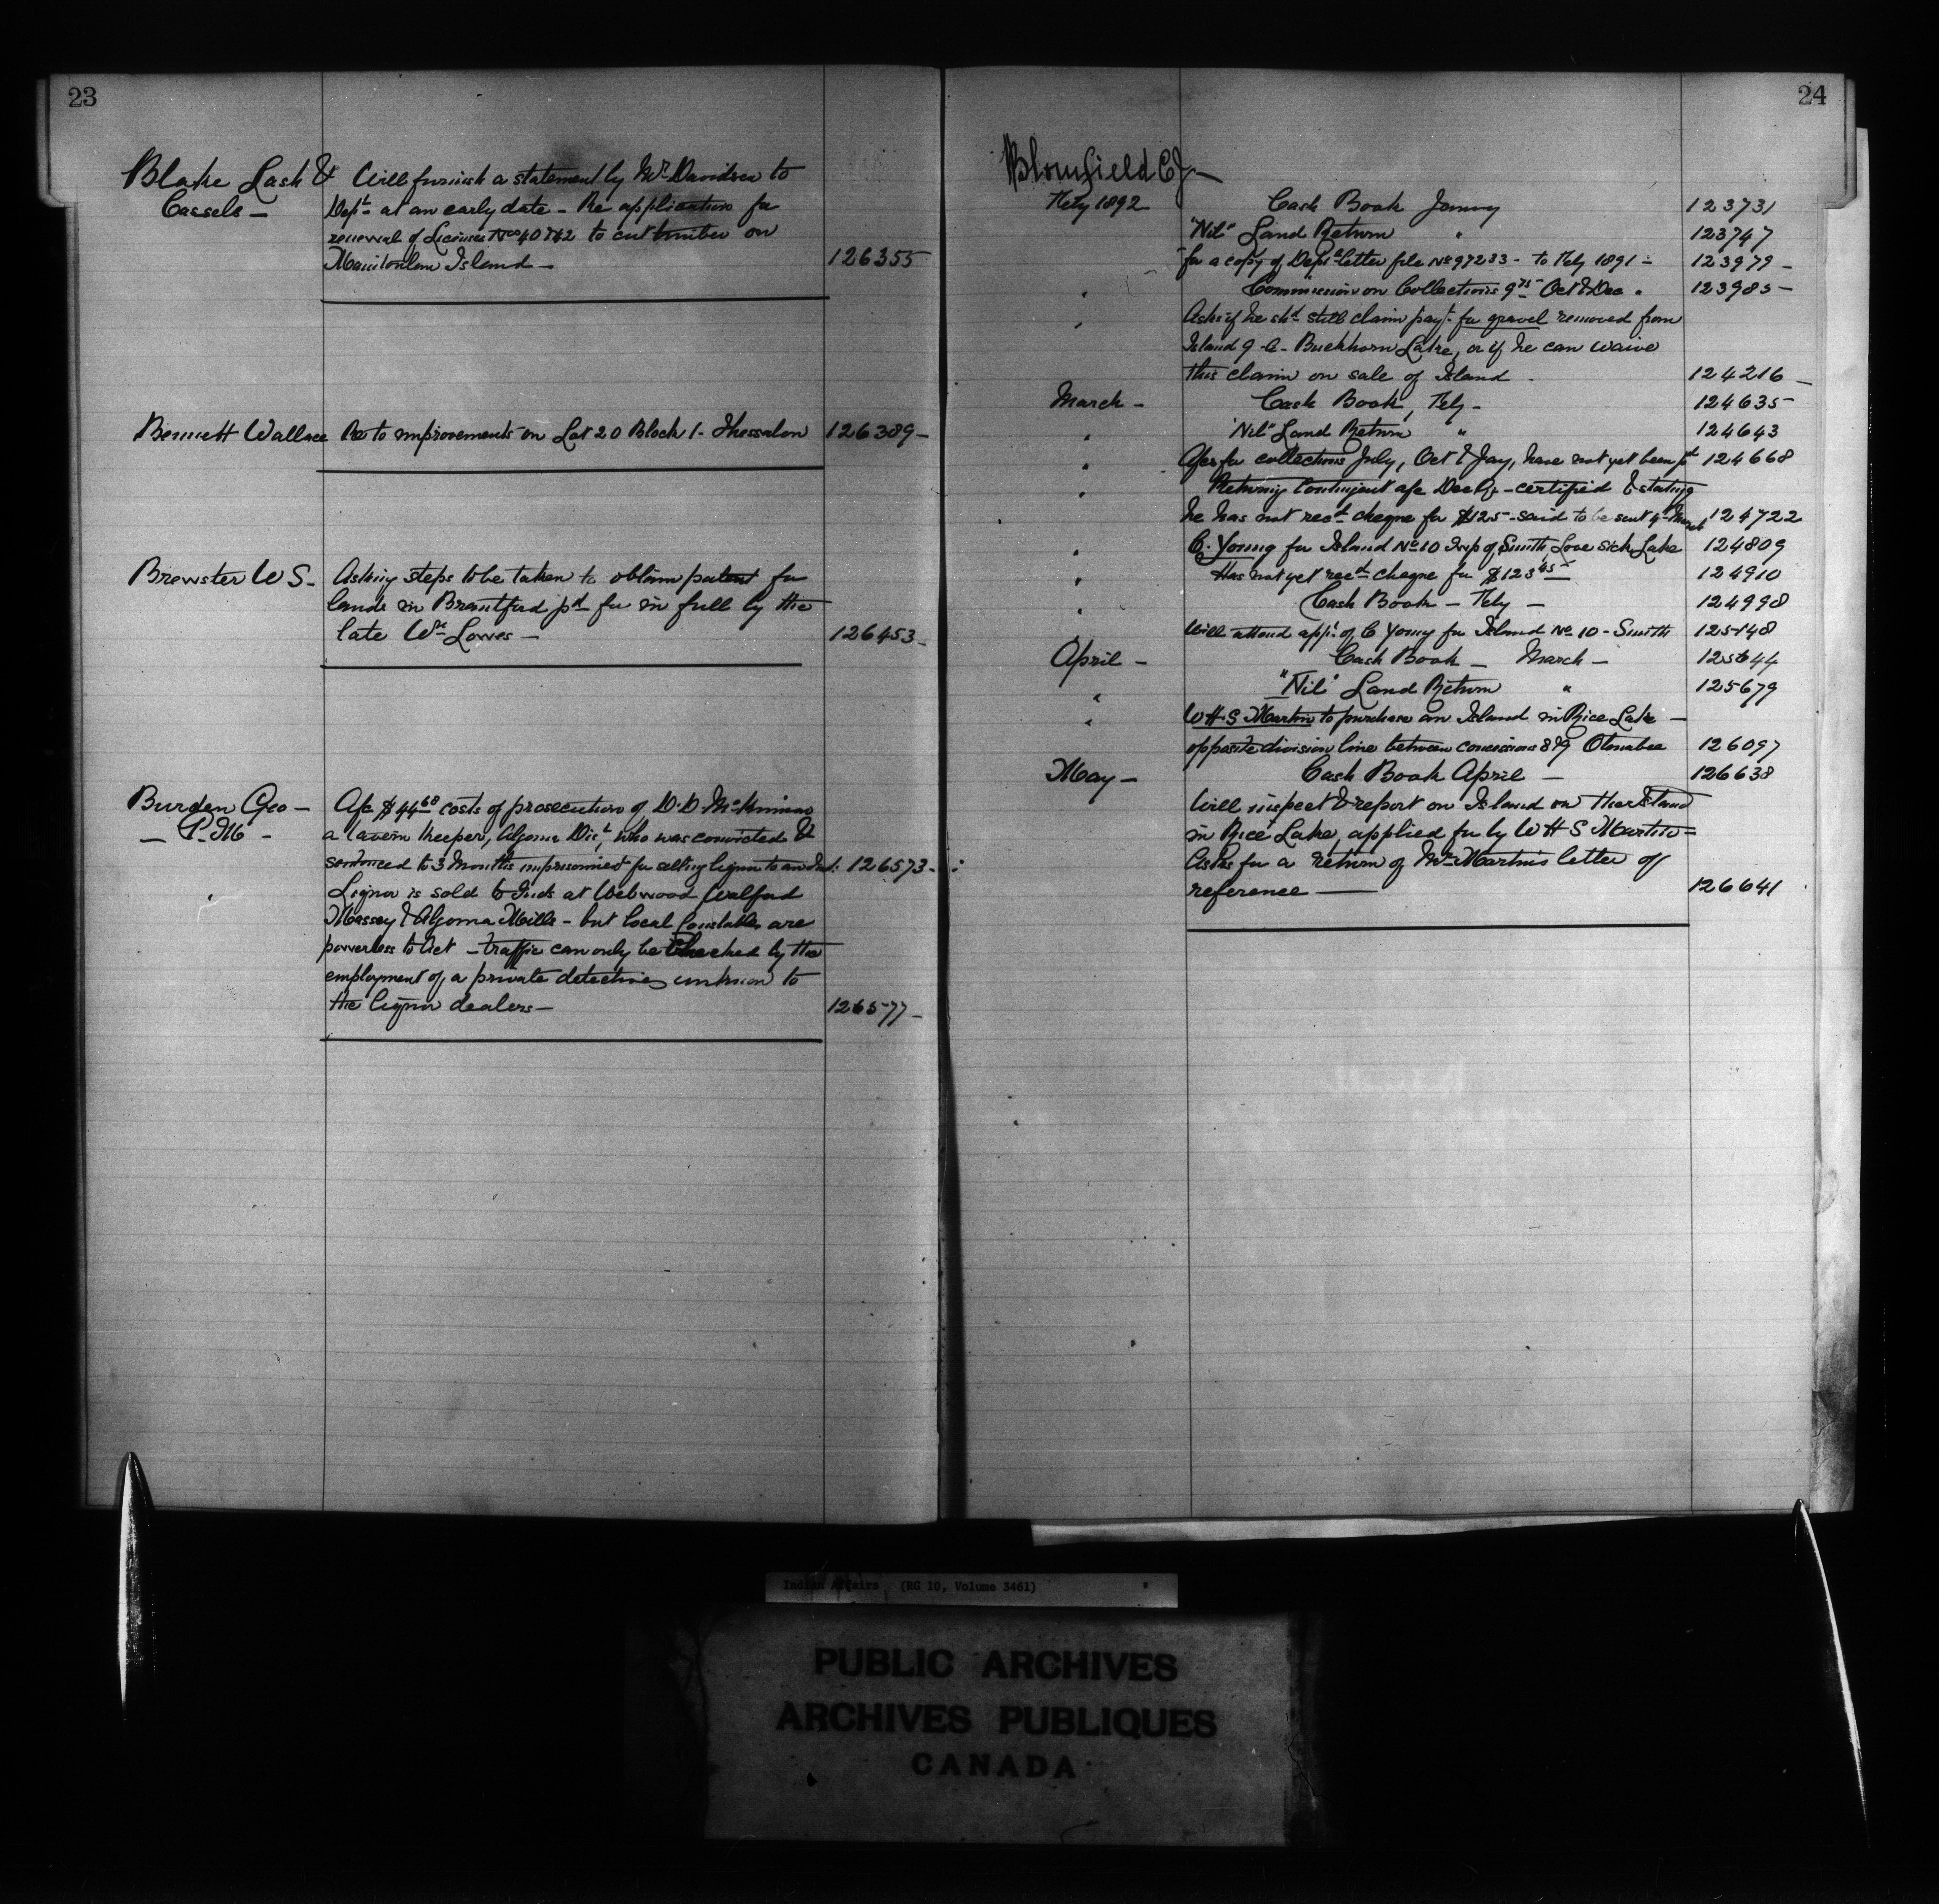 23
Blake Lash & Will furnish a statement by Mr. Davidson to
Cassels — Dept. at an early date - Re application for
renewal of Licenses Nos 40 & 42 to cut timber on
Manitoulin Island — 126355
Bennett Wallace Re to improvements on Lot 20 Block 1 - Thessalon 126389 -
Brewster W S - Asking steps to be taken to obtain patent for
lands in Brantford pd for in full by the
late Wm Lowes — 126453 -
Burden Geo — A/c $44.68 costs of prosecution of D. D.
— P. M - a tavern keeper, Algoma Dist, who was convicted &
sentenced to 3 months imprisonment for selling liquor to an Ind: 126573 -
" Liquor is sold to Inds at Webwood Walford
Massey & Algoma Mills - but local Constables are
powerless to Act - traffic can only be Checked by the
employment of a private detective unknown to
the liquor dealers — 126577 -
24
Blomfield C J —
Feby 1892 Cash Book January 123731
"Nil" Land Return " 123747
for a copy of Dept letter file No 97233 - to Feby 1891 - 123979 -
" Commission on Collections Oct & Dec " 123985 -
" Asks if he shd still claim payt. for gravel removed from
Island 9 - C - Buckhorn Lake, or if he can waive
this claim on sale of Island - 124216 -
March - Cash Book, Feby - 124635
" "Nil" Land Return " 124643
" A/cs for collections July, Oct & Jany, have not yet been pd 124668
" Returning Contingent a/c Dec Qr - certified & stating
he has not recd cheque for $125 - said to be sent 4th March 124722
" C. Young for Island No 10 Twp of Smith, Love sick Lake 124809
" Has not yet recd cheque for $123.45 124910
" Cash Book - Feby - 124998
Will attend appn. of C Young for Island No 10 - Smith 125148
April - Cash Book — March - 125644
" "Nil" Land Return " 125679
" W H S Martin to purchase an Island in Rice Lake -
opposite division line between concessions 8 & 9 Otonabee 126097
May - Cash Book April - 126638
Will inspect & report on Island on
in Rice Lake, applied for by W H S Martin -
Asks for a return of Mr Martin's letter of
reference — 126641
Indian Affairs (RG 10, Volume 3461)
PUBLIC ARCHIVES
ARCHIVES PUBLIQUES
CANADA